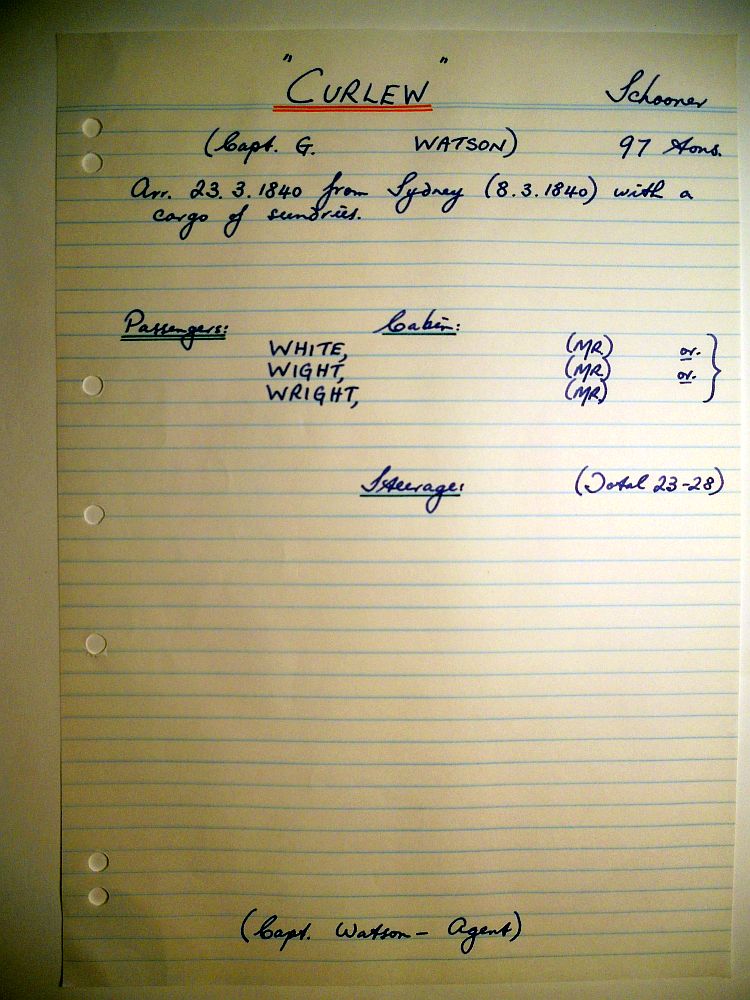 "CURLEW" Schooner
(Capt. G. WATSON) 97 Tons.
Arr. 23.3.1840 from Sydney (8.3.1840) with a
cargo of sundries.
Passengers: Cabin:
WHITE, (MR.) or.
WIGHT, (MR.) or.
WRIGHT, (MR.)
Steerage: (Total 23-28)
(Capt. Watson - Agent)